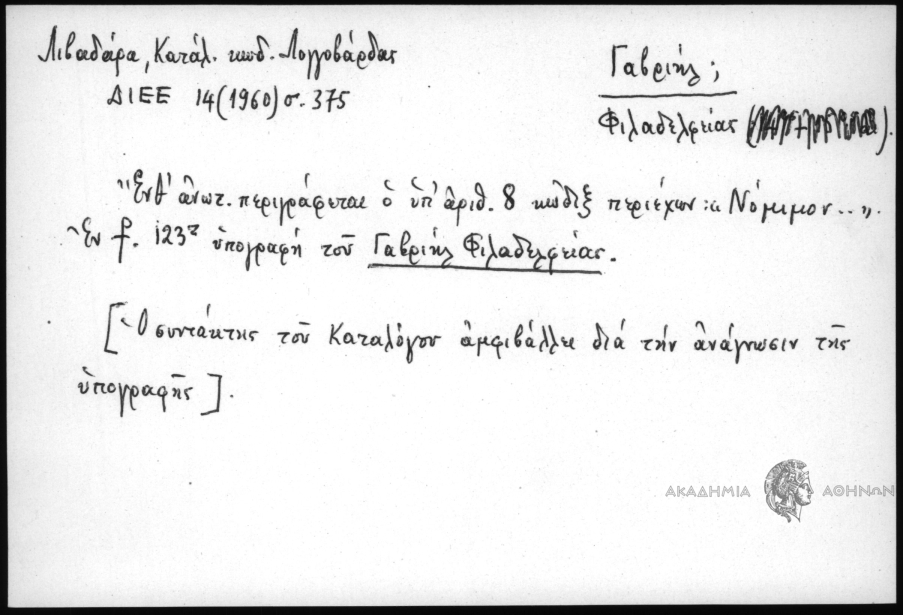 Λιβαδάρα, Κατάλ. κωδ. Λογγοβάρδας
ΔΙΕΕ 14 (1960) σ. 375
Γαβριήλ ;
Φιλαδελφείας
"Ἐνθ' ἀνωτ. περιγράφεται ὁ ὑπ' ἀριθ. 8 κώδιξ περιέχων : « Νόμιμον.. ».
Ἐν f. 123r ὑπογραφή τοῦ Γαβριήλ Φιλαδελφείας.
[Ὁ συντάκτης τοῦ Καταλόγου ἀμφιβάλλει διά τήν ἀνάγνωσιν τῆς
ὑπογραφῆς].
ΑΚΑΔΗΜΙΑ ΑΘΗΝΩΝ